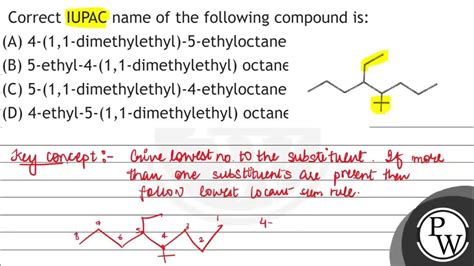 Correct IUPAC name of the following compound is:
(A) 4-(1,1-dimethylethyl)-5-ethyloctane
(B) 5-ethyl-4-(1,1-dimethylethyl) octane
(C) 5-(1,1-dimethylethyl)-4-ethyloctane
(D) 4-ethyl-5-(1,1-dimethylethyl) octane
Key concept:- Give lowest no. to the substituent. If more
than one substituents are present then
follow lowest locant sum rule.
8 7 6 5 4 3 2 1 4-
PW